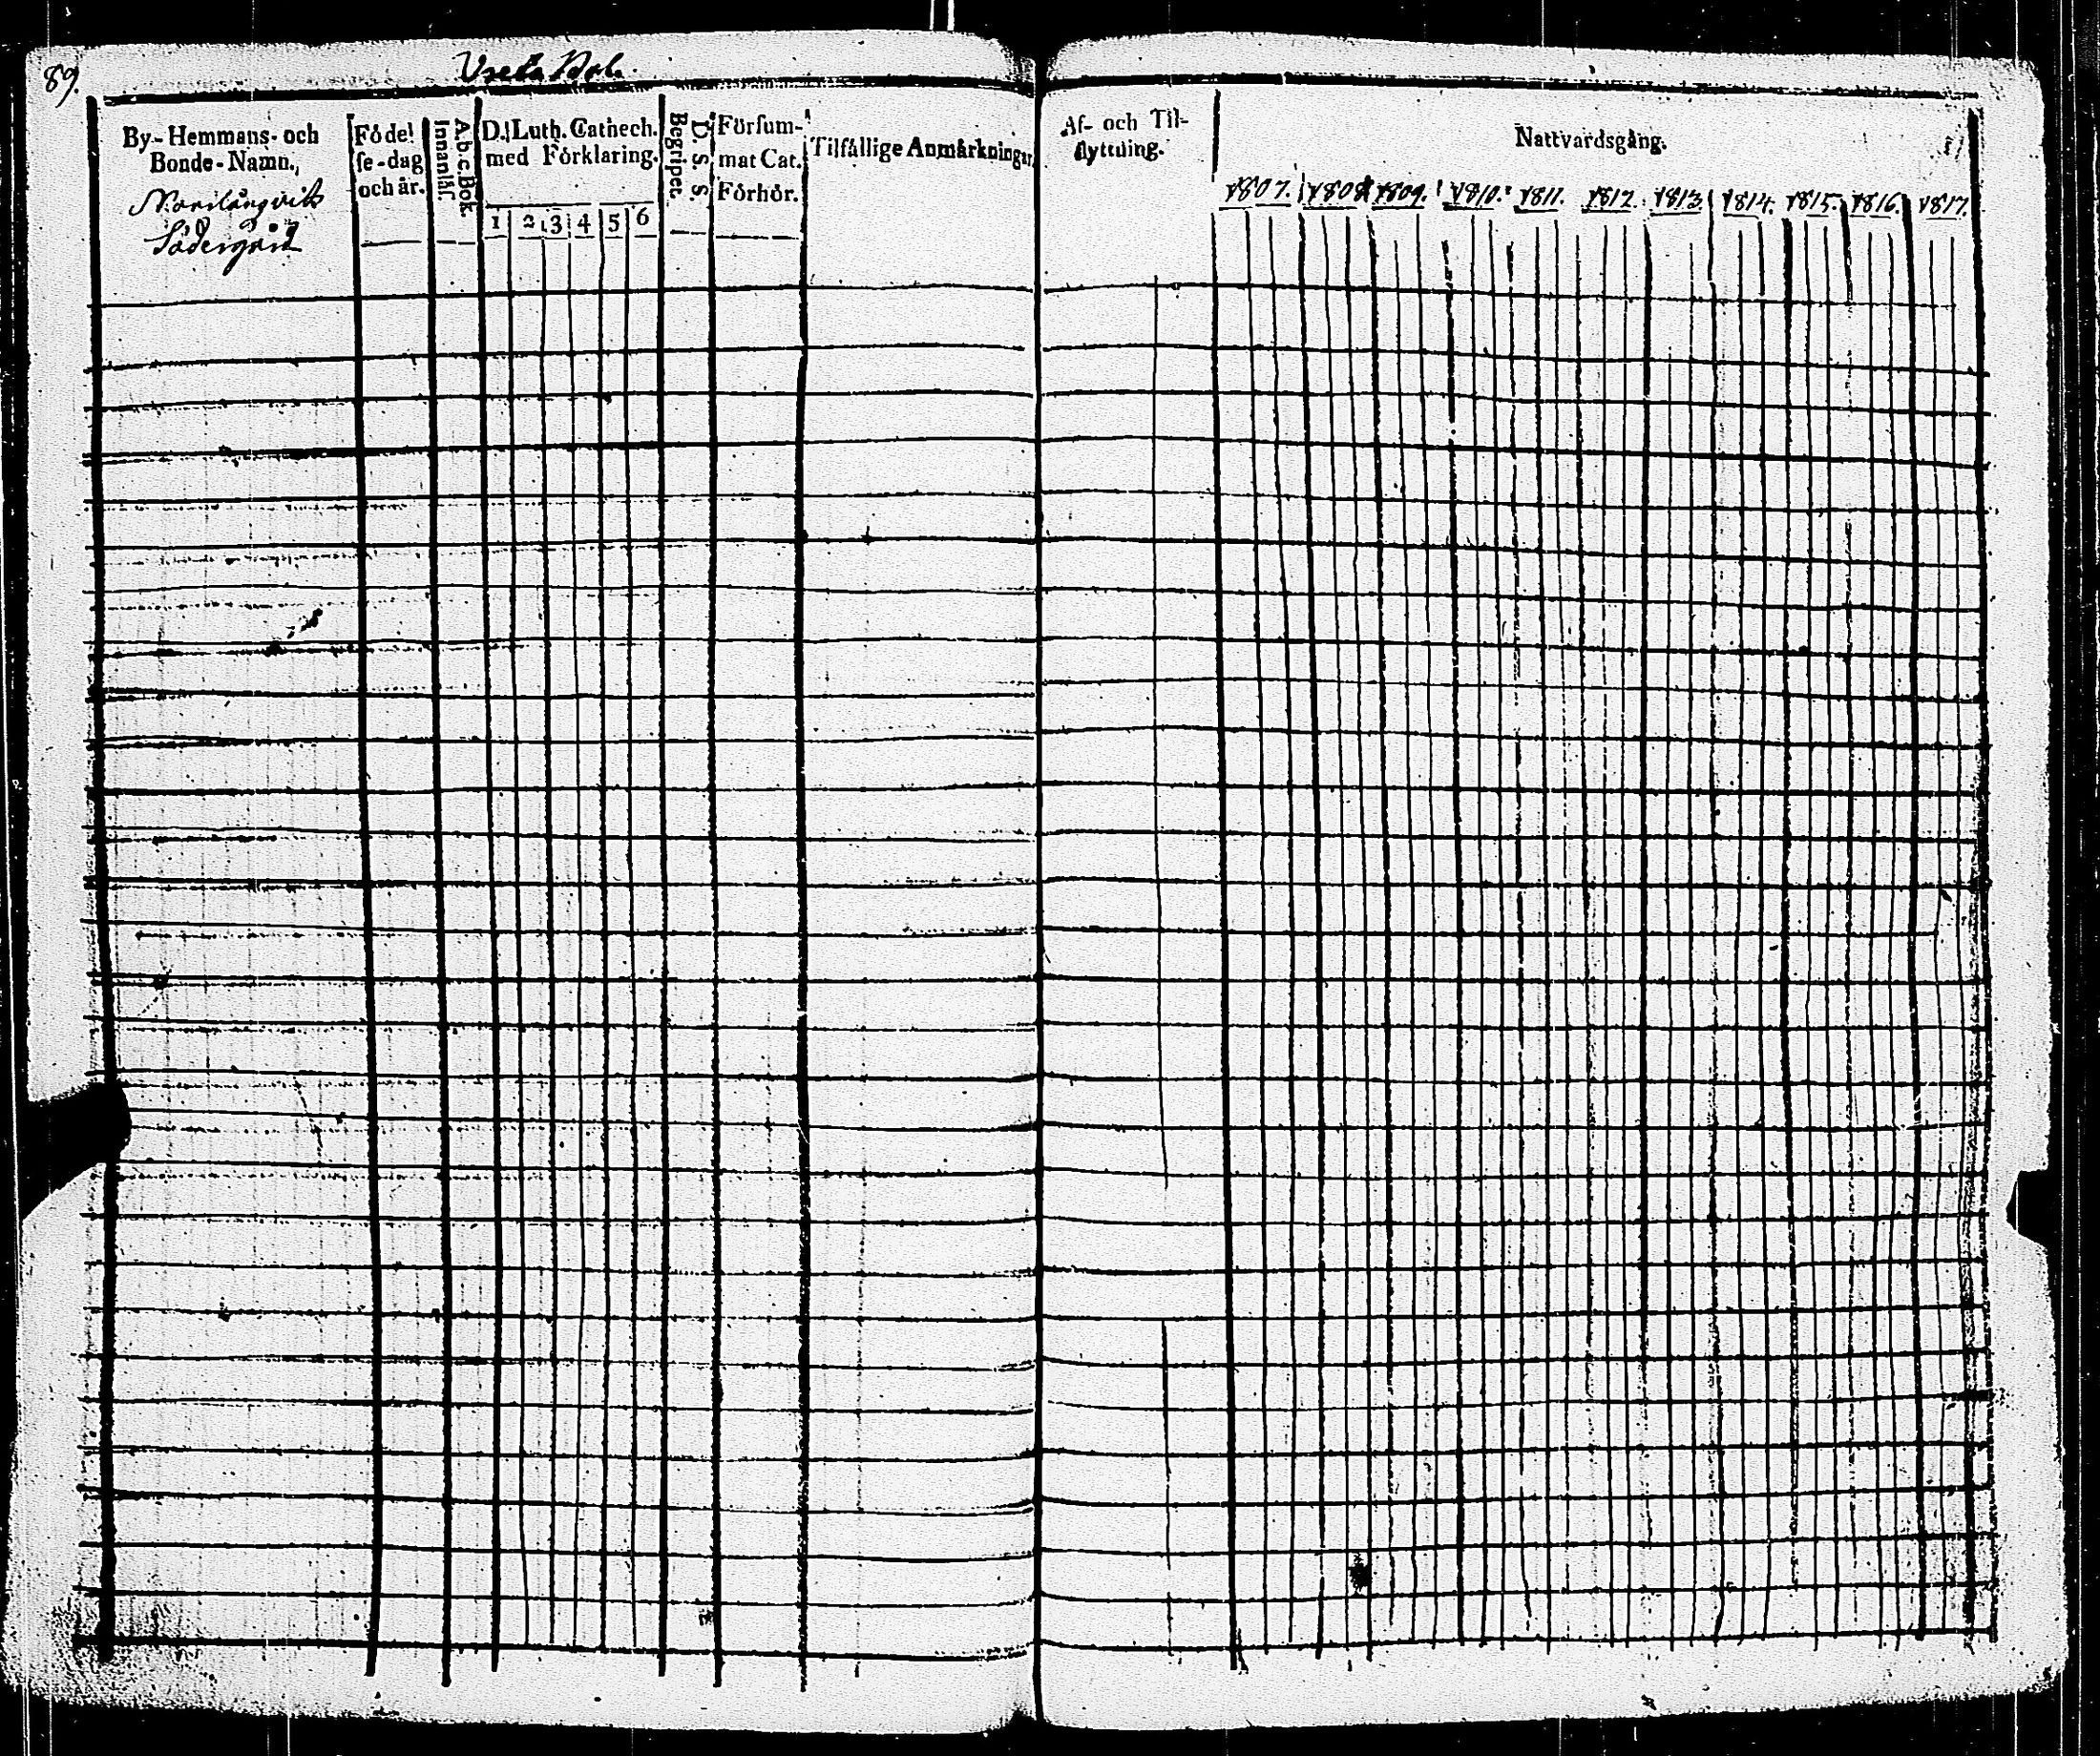 89.
By-Hemmans- och
Bonde-Namn.
Södergård
Födel
se-dag
och år.
A.b.c.Bok
Innanläs.
D. Luth. Cathech.
med Förklaring.
1 2 3 4 5 6
D. S. S.
Begripet.
Försum-
mat Cat.
Förhör.
Tilfällige Anmärkningar
Af- och Til-
flyttning.
Nattvardsgång.
1807. 1808 1809. 1810. 1811. 1812. 1813 1814. 1815. 1816. 1817.